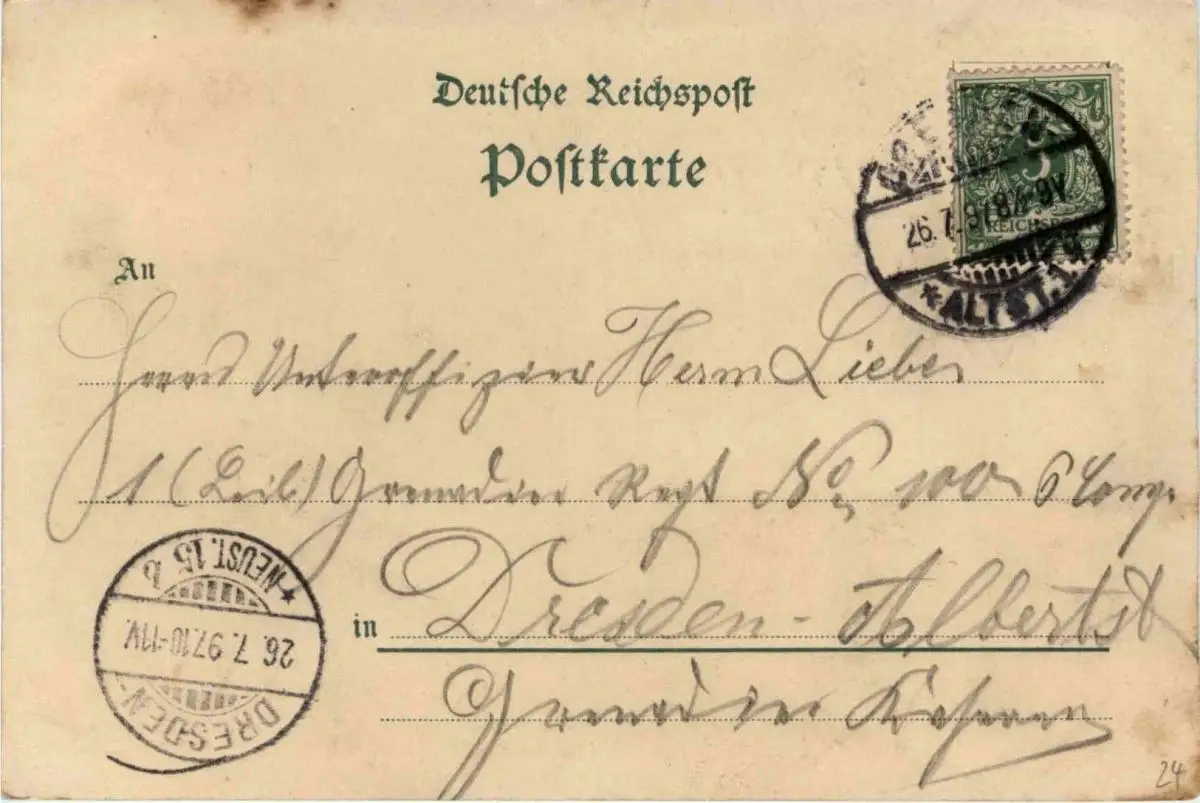 Deutsche Reichspost
Postkarte
5
REICHSPOST
26.7.97 8½-9V
*ALTST.1
An
Herrn Unteroffizier Herm Lieber
1 (Leib) Grenadier Regt No 100 6 Comp
in Dresden-Albertst
Grenadier Kaserne
*NEUST. 15 b
26. 7. 97.10-11V.
DRESDEN
24